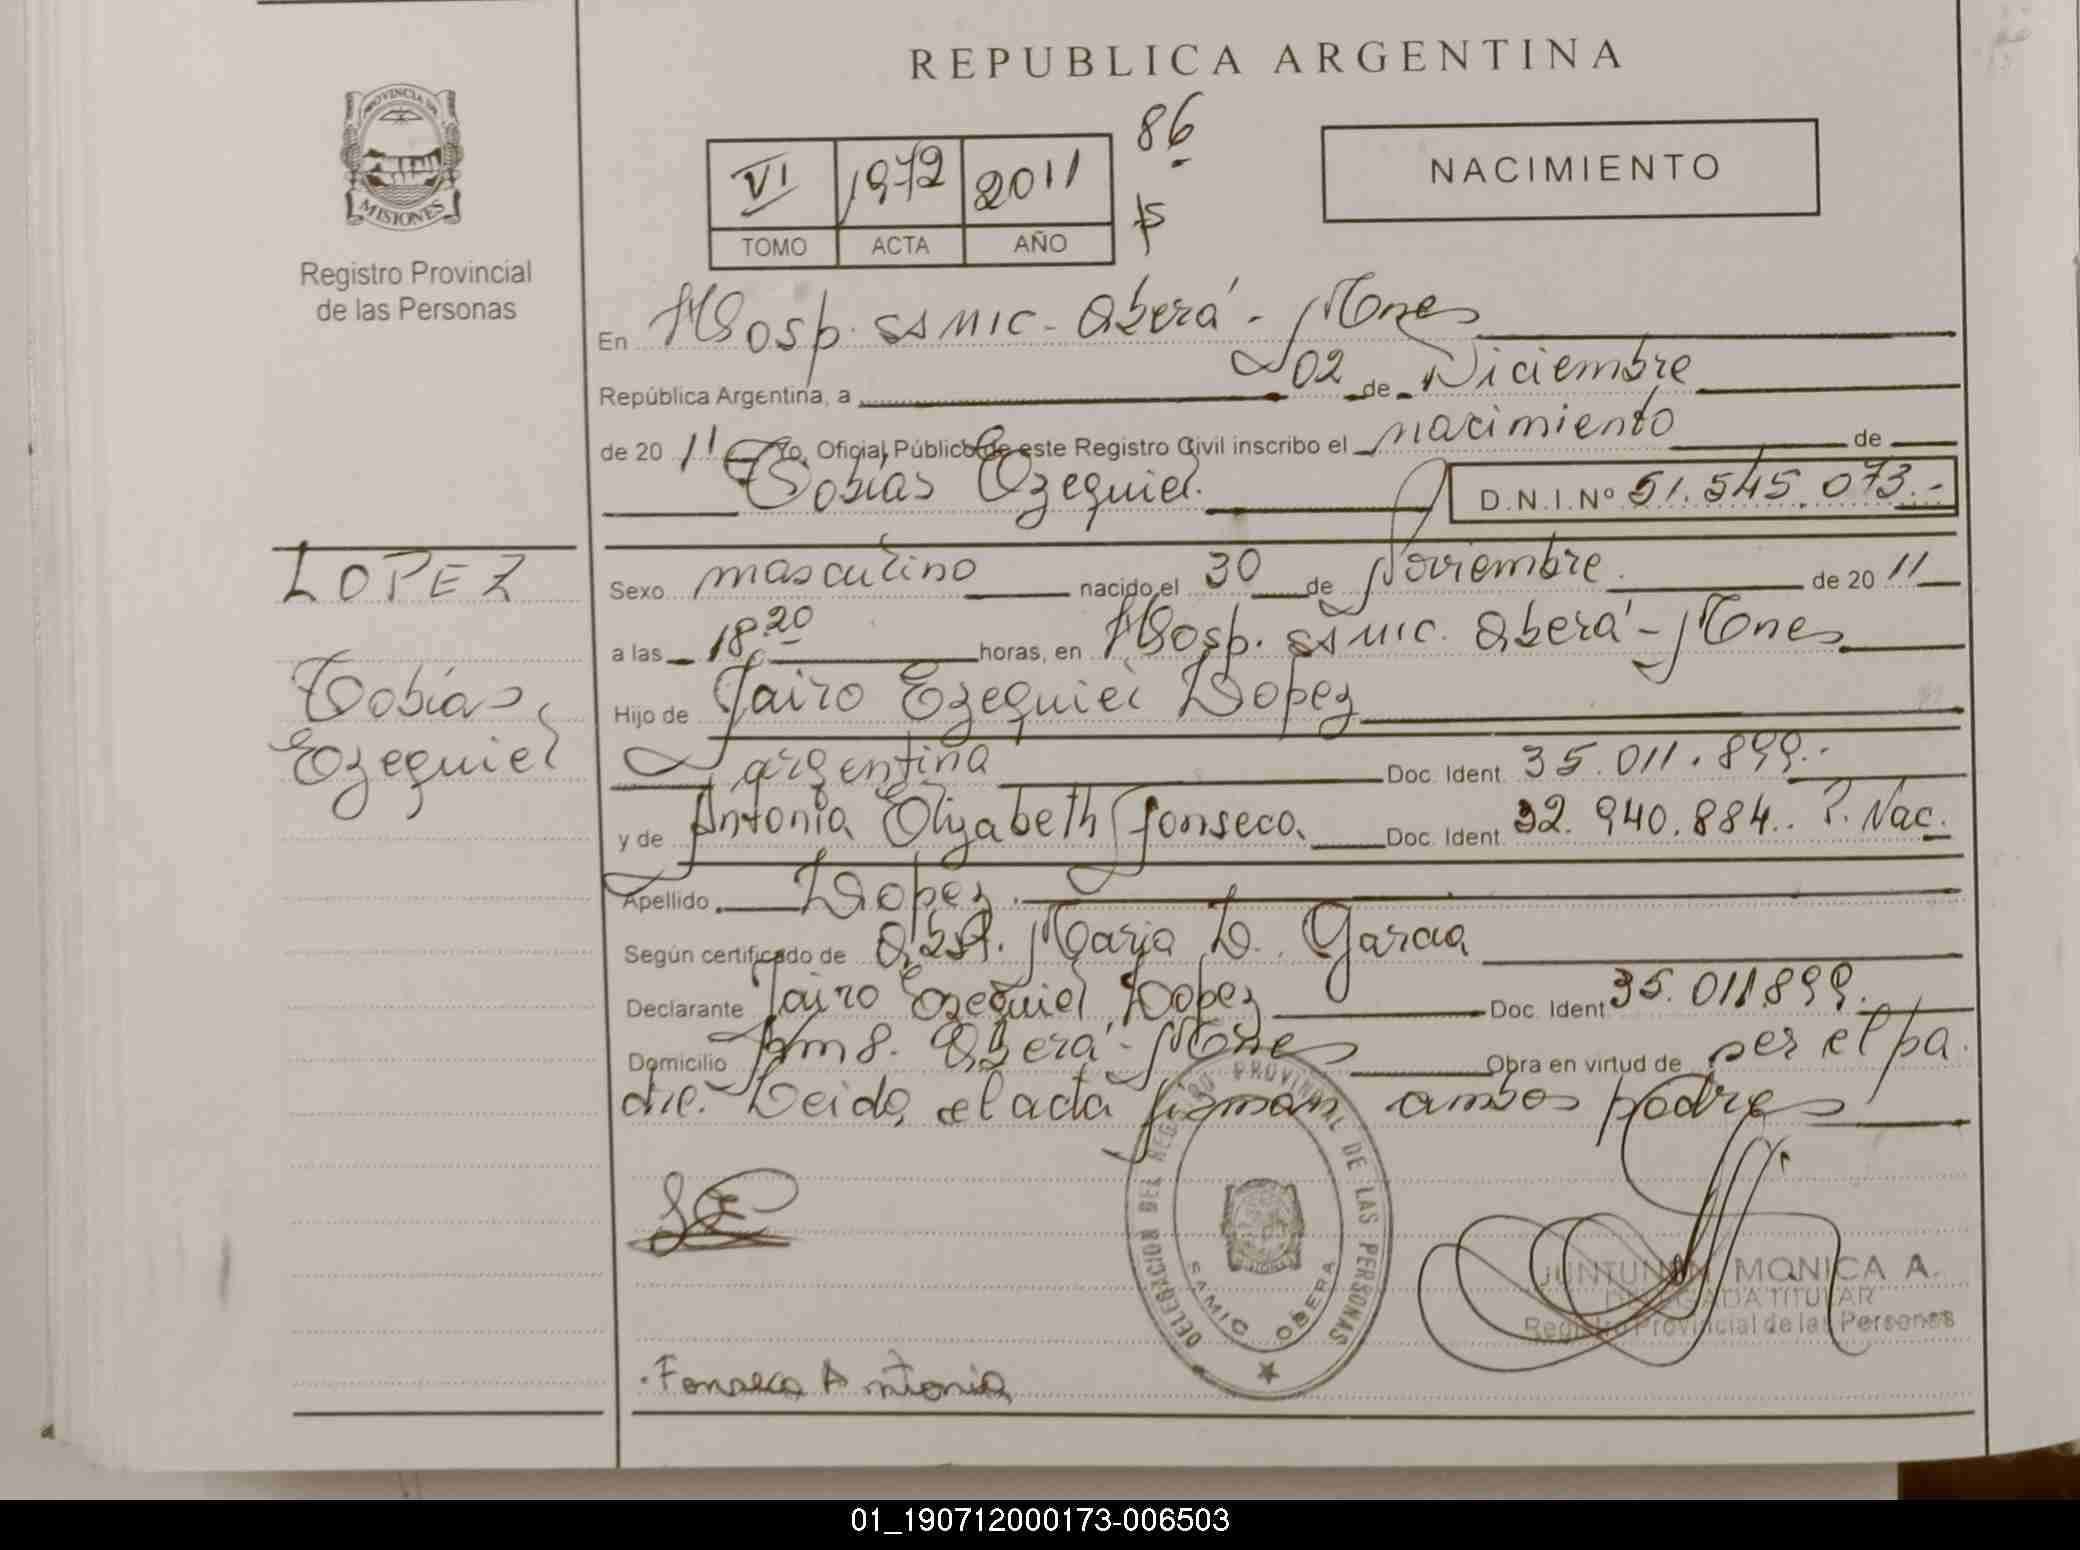 REPUBLICA ARGENTINA
PROVINCIA DE
MISIONES
Registro Provincial
de las Personas
VI 1972 2011
TOMO ACTA AÑO
86
NACIMIENTO
En Hosp. SAMIC - Oberá - Mnes
República Argentina, a 02 de Diciembre
de 2011 Yo, Oficial Público de este Registro Civil inscribo el nacimiento de
Tobías Ezequiel. D.N.I. Nº 51.545.073.-
LOPEZ
Tobías
Ezequiel
Sexo masculino nacido el 30 de Noviembre de 2011
a las 18,20 horas, en Hosp. SAMIC. Oberá - Mnes
Hijo de Jairo Ezequiel Lopez
argentina Doc. Ident. 35.011.899.-
y de Antonia Elizabeth Fonseca Doc. Ident. 32.940.884.. P. Nac.
Apellido Lopez.
Según certificado de Obst. Maria L. Garcia
Declarante Jairo Ezequiel Lopez Doc. Ident 35.011.899.
Domicilio Km 8. Oberá - Mnes Obra en virtud de ser el pa
dre. Leida el acta firman ambos padres
DELEGACION DEL REGISTRO PROVINCIAL DE LAS PERSONAS
SAMIC OBERA
JUNTUNEN MONICA A.
DELEGADA TITULAR
Registro Provincial de las Personas
Fonseca Antonia
01_190712000173-006503